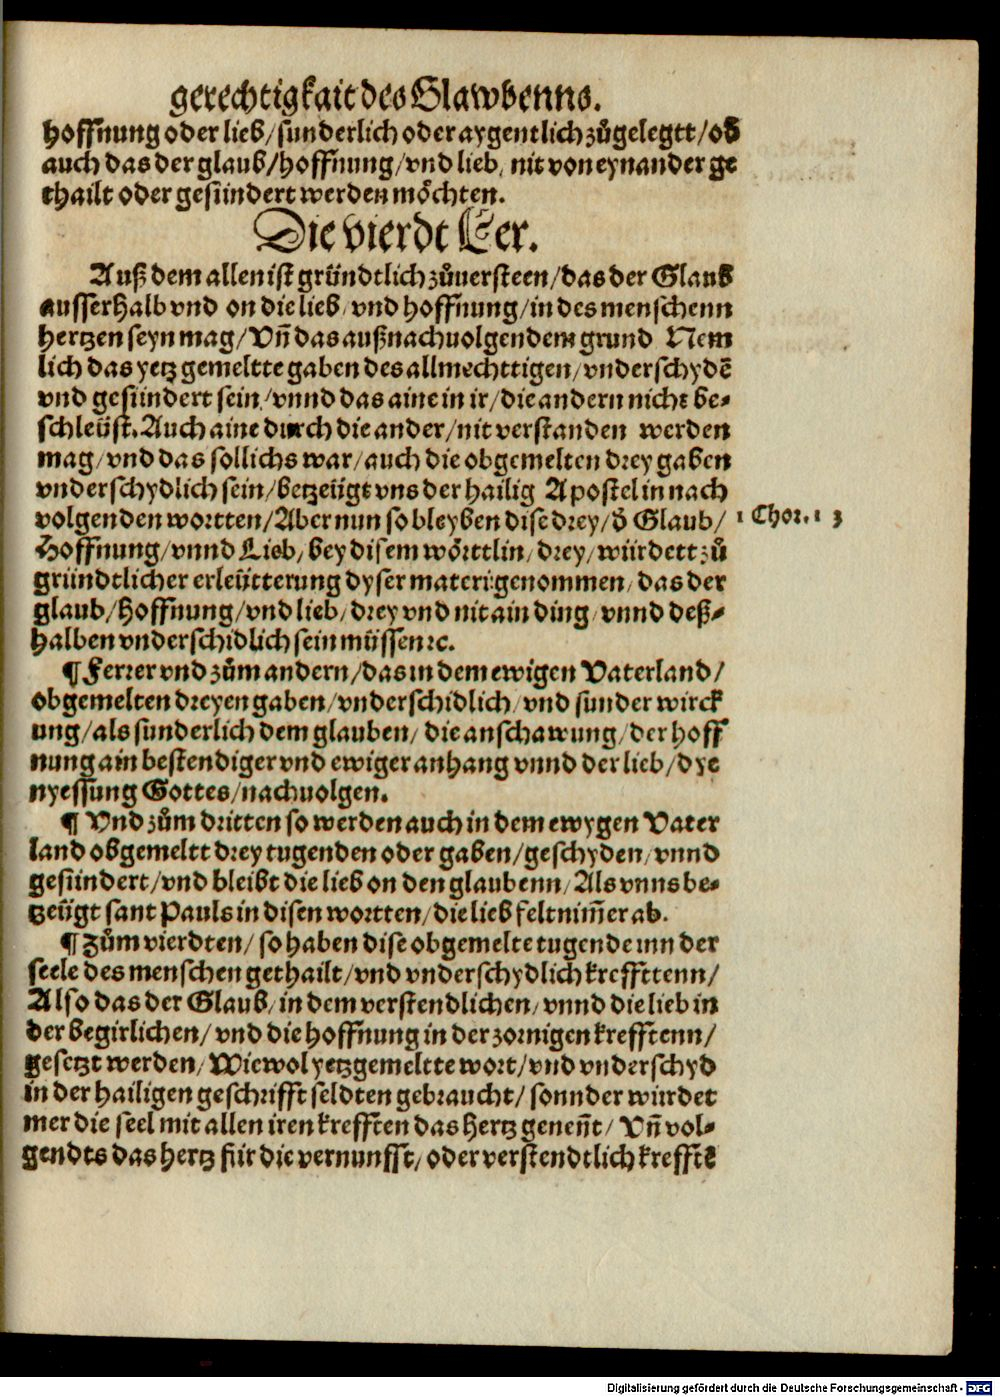 gerechtigkait des Glawbenns.
hoffnung oder lieb/ sunderlich oder aygentlich zůgelegtt/ ob
auch das der glaub/ hoffnung/ vnd lieb, nit von eynander ge
thailt oder gesündert werden möchten.
Die vierdt Ler.
Auß dem allen ist gründtlich zůuersteen/ das der Glaub
ausserhalb vnd on die lieb/ vnd hoffnung/ in des menschenn
hertzen seyn mag/ Vñ das auß nachuolgendem grund Nem
lich das yetz gemeltte gaben des allmechttigen/ vnderschydẽ
vnd gesündert sein/ vnnd das aine in ir/ die andern nicht be⸗
schleüst. Auch aine durch die ander/ nit verstanden werden
mag/ vnd das sollichs war/ auch die obgemelten drey gaben
vnderschydlich sein/ betzeügt vns der hailig Apostel in nach
volgenden wortten/ Aber nun so bleyben dise drey/ d̕ Glaub/
Hoffnung/ vnnd Lieb/ bey disem wörttlin/ drey/ würdett zů
gründtlicher erleütterung dyser materi genommen/ das der
glaub/ hoffnung/ vnd lieb/ drey vnd nit ain ding/ vnnd deß⸗
halben vnderschidlich sein müssen ꝛc.
1 Chor. 13
¶ Ferrer vnd zům andern/ das in dem ewigen Vaterland/
obgemelten dreyen gaben/ vnderschidlich/ vnd sunder wirck
ung/ als sunderlich dem glauben/ die anschawung/ der hoff
nung ain bestendiger vnd ewiger anhang vnnd der lieb/ dye
nyessung Gottes/ nachuolgen.
¶ Vnd zům dritten so werden auch in dem ewygen Vater
land obgemeltt drey tugenden oder gaben/ geschyden/ vnnd
gesündert/ vnd bleibt die lieb on den glaubenn/ Als vnns be⸗
tzeügt sant Pauls in disen wortten/ die lieb felt nim̃er ab.
¶ Zům vierdten/ so haben dise obgemelte tugende inn der
seele des menschen gethailt/ vnd vnderschydlich kreffttenn/
Also das der Glaub/ in dem verstendlichen/ vnnd die lieb in
der begirlichen/ vnd die hoffnung in der zornigen krefftenn/
gesetzt werden/ Wiewol yetzgemeltte wort/ vnd vnderschyd
in der hailigen geschrifft seldten gebraucht/ sonnder würdet
mer die seel mit allen iren krefften das hertz geneñt/ Vñ vol⸗
gendts das hertz für die vernunfft/ oder verstendtlich krefftẽ
Digitalisierung gefördert durch die Deutsche Forschungsgemeinschaft - DFG